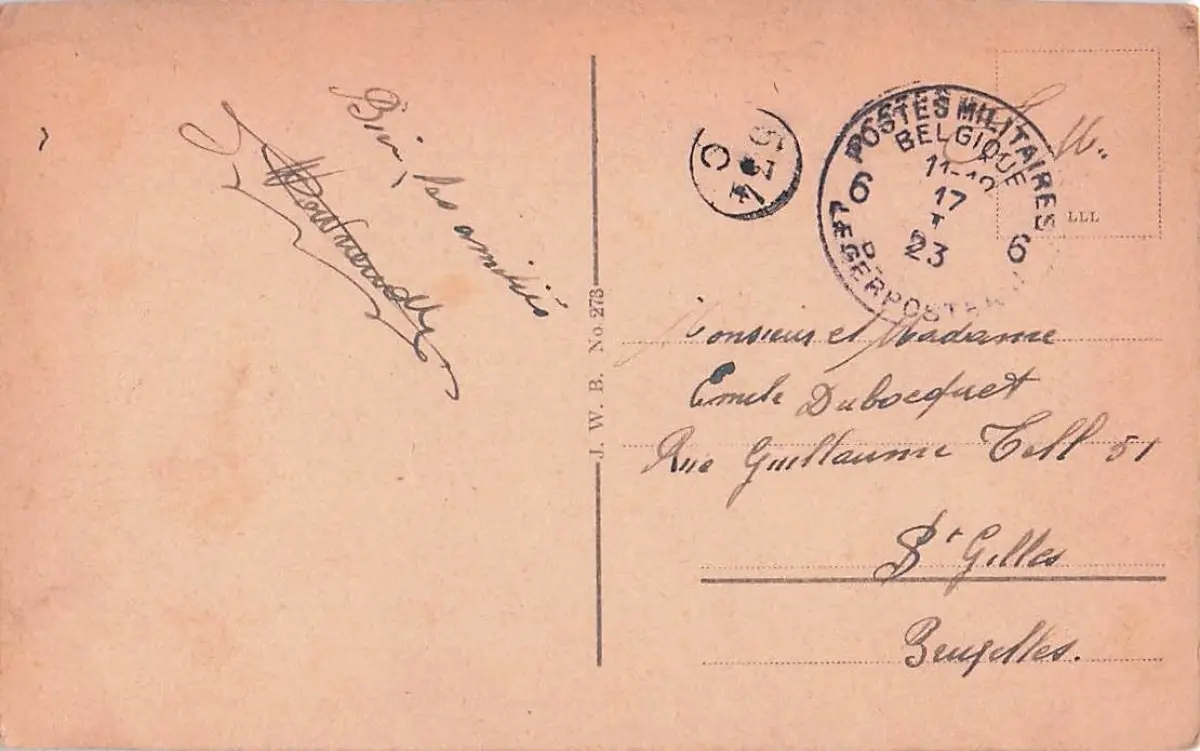 Bien des amitiés
J. W. B. No. 273
C
POSTES MILITAIRES
BELGIQUE
11-12
17
I
23
6 6
LEGERPOSTERIJ
S. M.
LLL
Monsieur et Madame
Emile Dubocquet
Rue Guillaume Tell 51
St Gilles
Bruxelles.